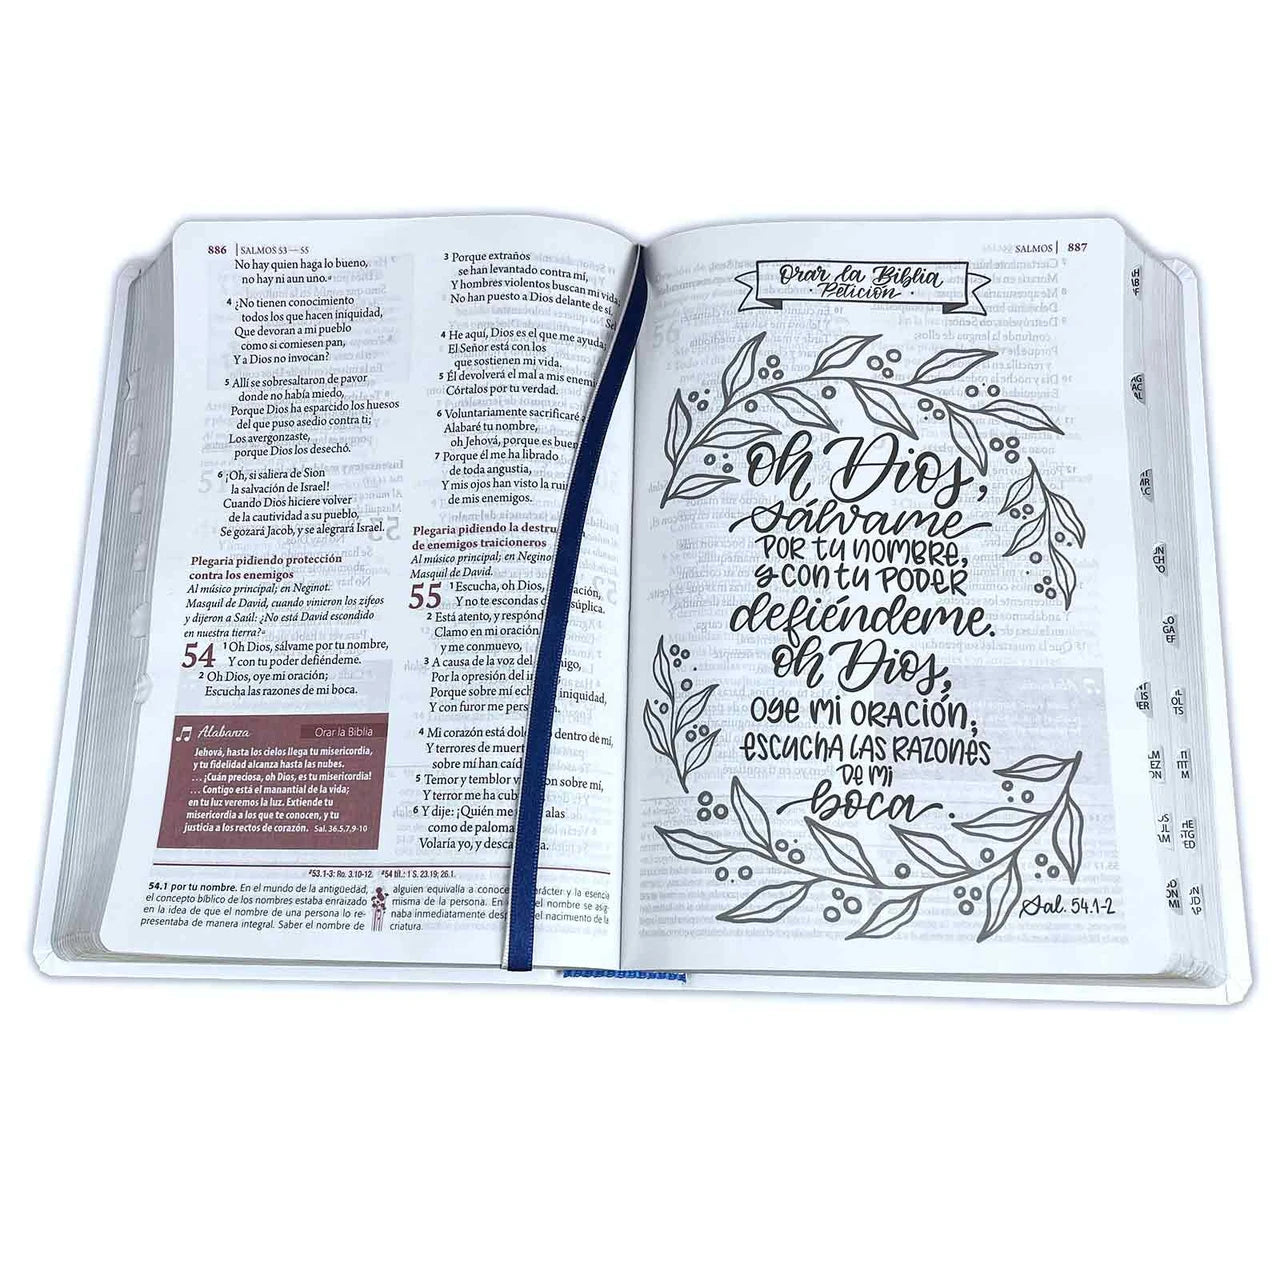 886 | SALMOS 53—55
No hay quien haga lo bueno,
no hay ni aun uno.ª
4 ¿No tienen conocimiento
todos los que hacen iniquidad,
Que devoran a mi pueblo
como si comiesen pan,
Y a Dios no invocan?
5 Allí se sobresaltaron de pavor
donde no había miedo,
Porque Dios ha esparcido los huesos
del que puso asedio contra ti;
Los avergonzaste,
porque Dios los desechó.
6 ¡Oh, si saliera de Sion
la salvación de Israel!
Cuando Dios hiciere volver
de la cautividad a su pueblo,
Se gozará Jacob, y se alegrará Israel.
Plegaria pidiendo protección
contra los enemigos
Al músico principal; en Neginot.
Masquil de David, cuando vinieron los zifeos
y dijeron a Saúl: ¿No está David escondido
en nuestra tierra?ª
54 1 Oh Dios, sálvame por tu nombre,
Y con tu poder defiéndeme.
2 Oh Dios, oye mi oración;
Escucha las razones de mi boca.
Alabanza Orar la Biblia
Jehová, hasta los cielos llega tu misericordia,
y tu fidelidad alcanza hasta las nubes.
. . . ¡Cuán preciosa, oh Dios, es tu misericordia!
. . . Contigo está el manantial de la vida;
en tu luz veremos la luz. Extiende tu
misericordia a los que te conocen, y tu
justicia a los rectos de corazón. Sal. 36.5,7,9-10
3 Porque extraños
se han levantado contra mí,
Y hombres violentos buscan mi vida;
No han puesto a Dios delante de sí.
Sel
4 He aquí, Dios es el que me ayuda;
El Señor está con los
que sostienen mi vida.
5 Él devolverá el mal a mis enemi
Córtalos por tu verdad.
6 Voluntariamente sacrificaré a
Alabaré tu nombre,
oh Jehová, porque es buen
7 Porque él me ha librado
de toda angustia,
Y mis ojos han visto la rui
de mis enemigos.
Plegaria pidiendo la destru
de enemigos traicioneros
Al músico principal; en Neginot
Masquil de David.
55 1 Escucha, oh Dios, ación,
Y no te escondas d súplica.
2 Está atento, y respónd
Clamo en mi oración
y me conmuevo,
3 A causa de la voz del migo,
Por la opresión del i
Porque sobre mí ech iniquidad,
Y con furor me pers
4 Mi corazón está dolo dentro de mí,
Y terrores de muert
sobre mí han caíd
5 Temor y temblor v on sobre mí,
Y terror me ha cub
6 Y dije: ¡Quién me alas
como de paloma
Volaría yo, y desca
ª53.1-3: Ro. 3.10-12. ª54 tít.: 1 S. 23.19; 26.1.
54.1 por tu nombre. En el mundo de la antigüedad,
el concepto bíblico de los nombres estaba enraizado
en la idea de que el nombre de una persona lo re-
presentaba de manera integral. Saber el nombre de
alguien equivalía a conoce arácter y la esencia
misma de la persona. En el nombre se asig-
naba inmediatamente desp el nacimiento de la
criatura.
SALMOS | 887
Orar la Biblia
Petición
Oh Dios,
sálvame
por tu nombre,
y con tu poder
defiéndeme.
Oh Dios,
oye mi oración;
escucha las razones
de mi
boca.
Sal. 54.1-2